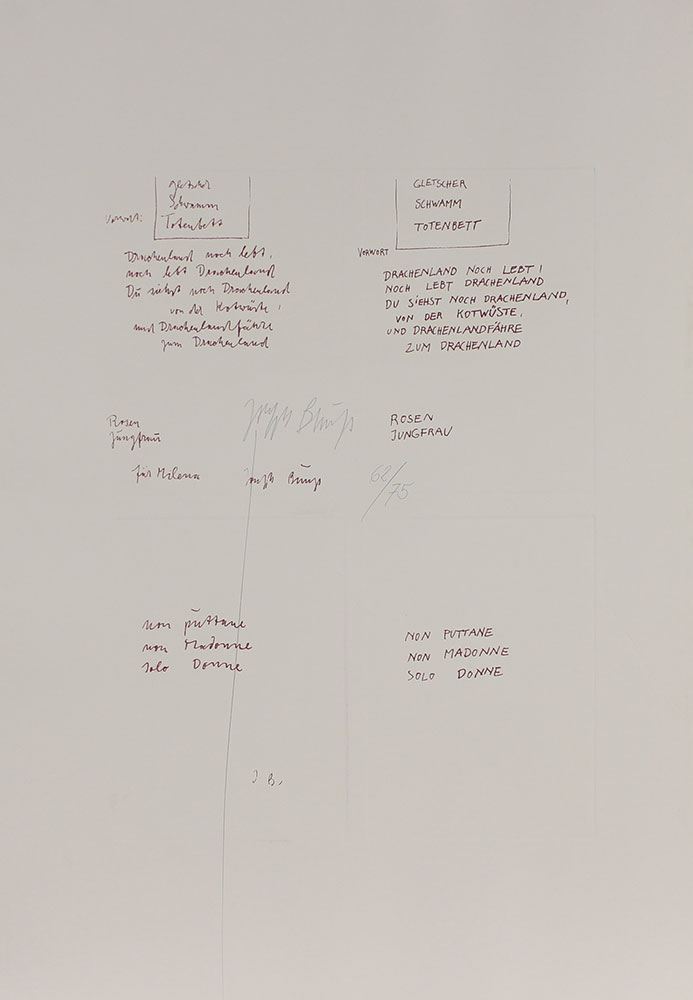 gletscher
Schwamm
Vorwort:
Totenbett
Drachenland noch lebt,
noch lebt Drachenland
Du siehst noch Drachenland
von der Kotwüste,
und Drachenlandfähre
zum Drachenland
Rosen
Jungfrau
für Milena
Joseph Beuys
Joseph Beuys
62/75
GLETSCHER
SCHWAMM
TOTENBETT
VORWORT
DRACHENLAND NOCH LEBT!
NOCH LEBT DRACHENLAND
DU SIEHST NOCH DRACHENLAND,
VON DER KOTWÜSTE,
UND DRACHENLANDFÄHRE
ZUM DRACHENLAND
ROSEN
JUNGFRAU
non puttane
non Madonne
solo Donne
J B.
NON PUTTANE
NON MADONNE
SOLO DONNE